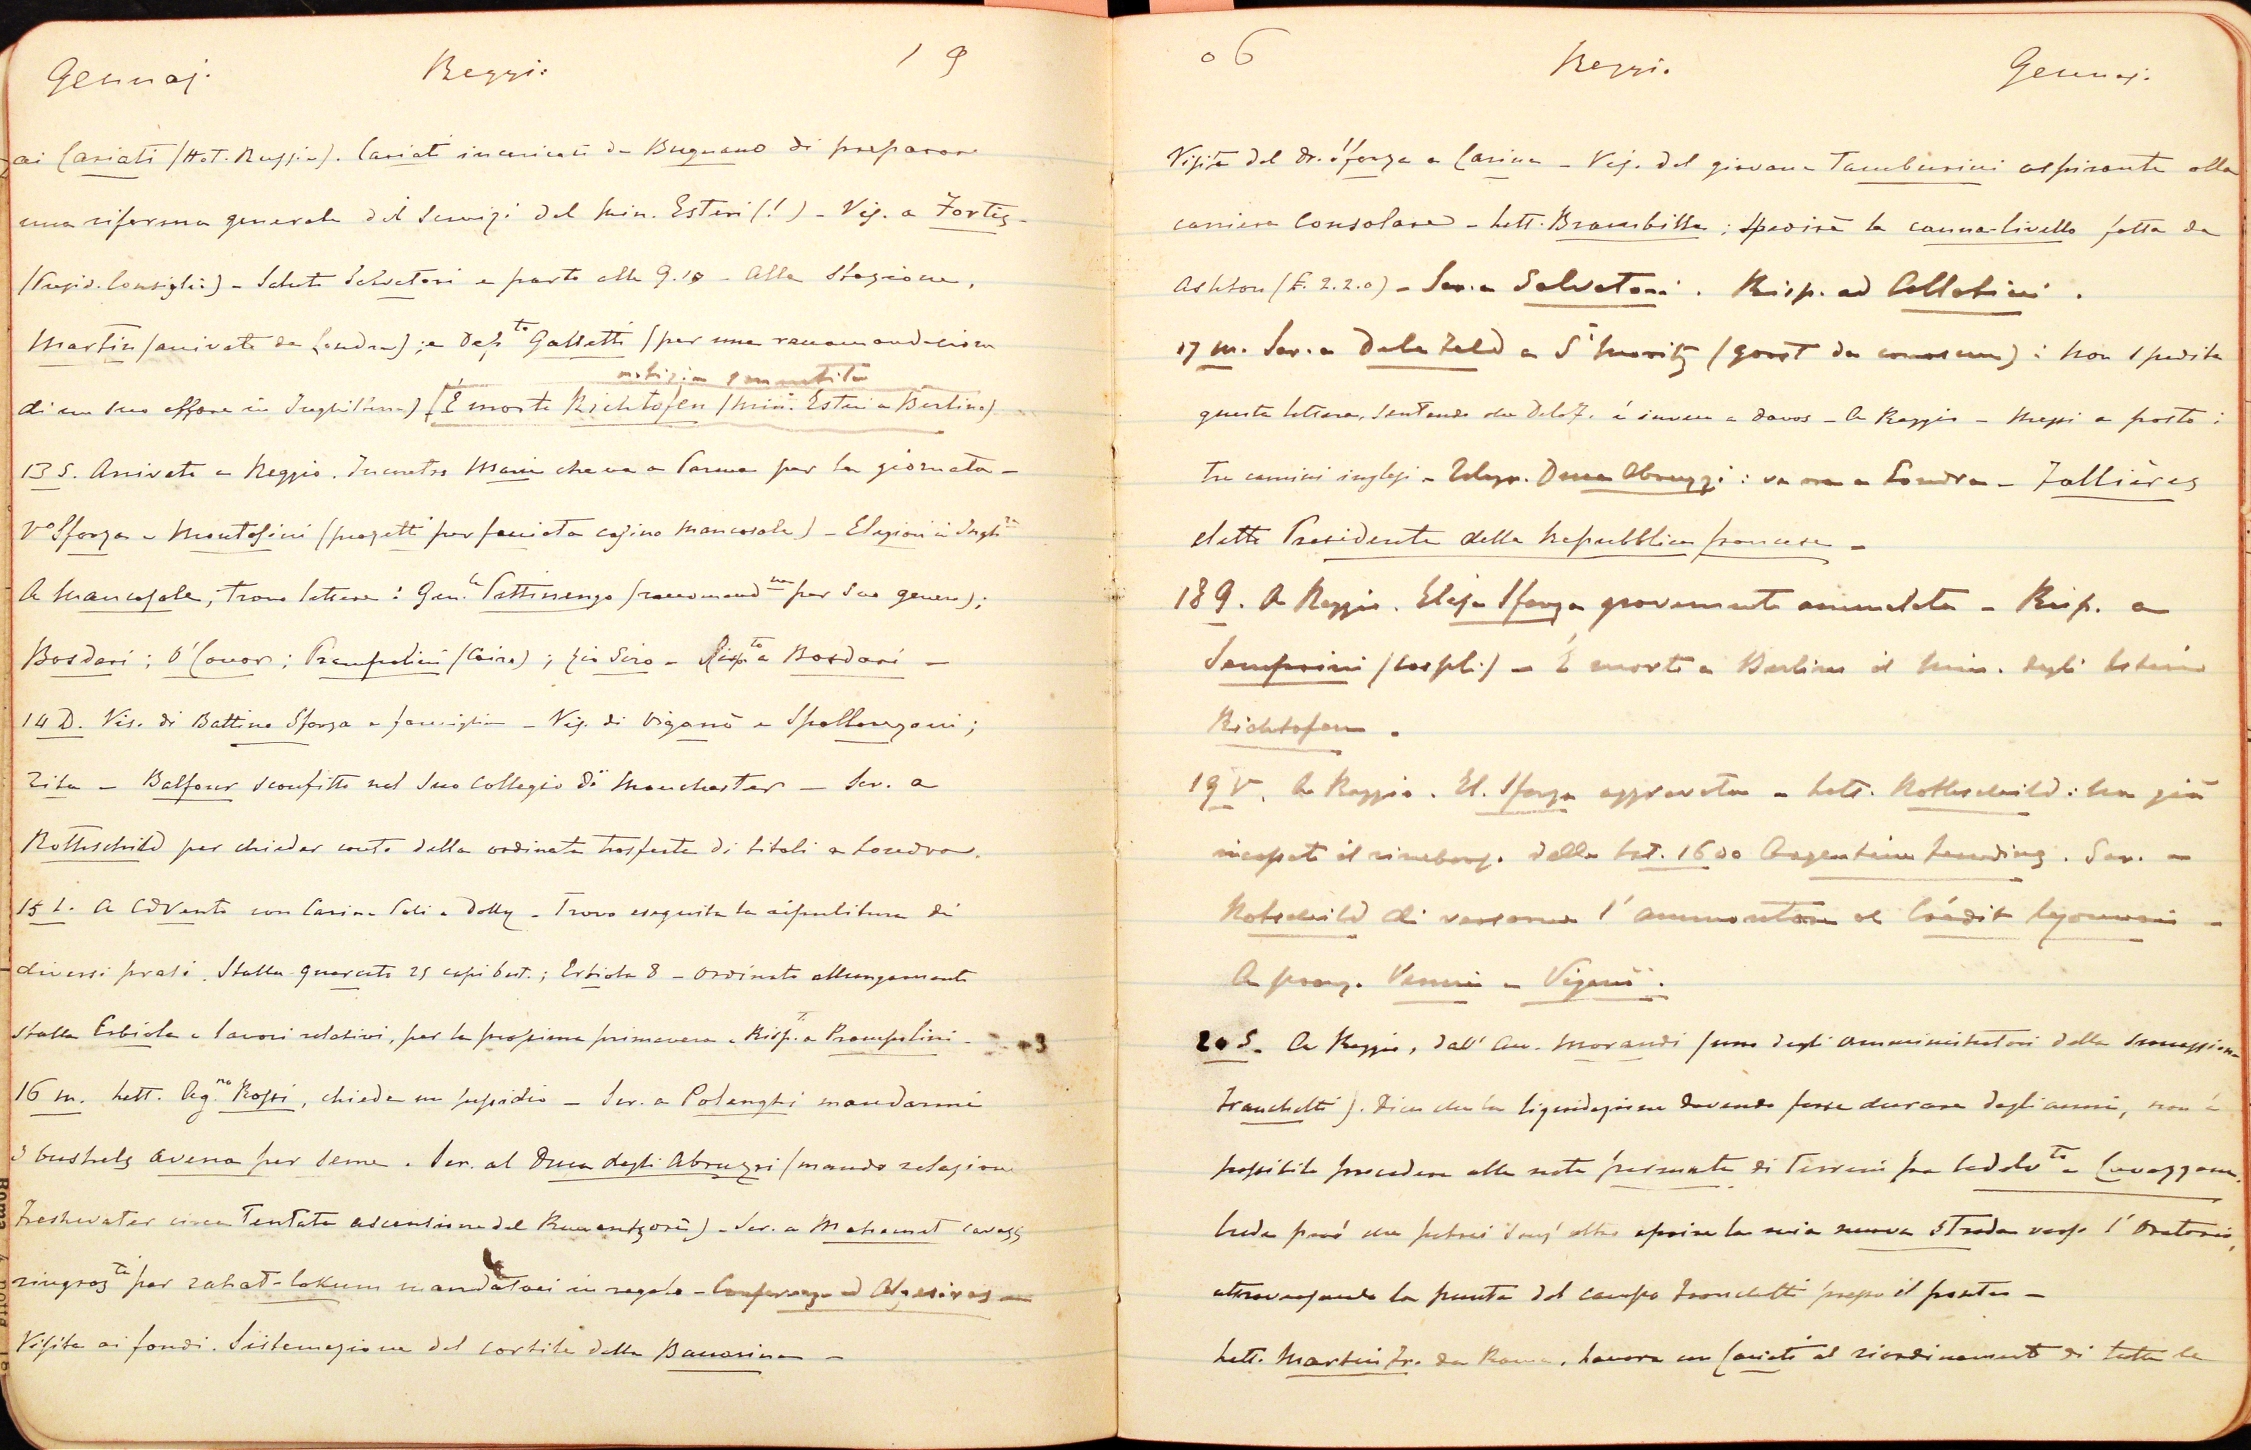 Gennaj. Reggio 19
ai Cariati (Hot. Russie). Cariati incaricato da Bugnano di preparare
una riforma generale dei Servizi del Min. Esteri (!) - Vis. a Fortis -
(Presid. Consiglio) - Saluto Salvatori e parto alle 9.10 - Alla Stazione,
Martin (arrivato da Londra); e Dep.to Galletti (per una raccomandazione
notizia smentita
di un suo affare in Inghilterra) [È morto Richtofen (Min. Esteri a Berlino)
13 S. Arrivato a Reggio. Incontro Maria che va a Parma per la giornata -
V° Sforza e Montasini (progetti per facciata casino Mancasale) - Elezioni in Ingh.ra
A Mancasale, trovo lettere: Gen.le Pettinengo (raccomand.ne per suo genero);
Bosdari; O'Conor; Prampolini (Cairo); zio Siro - Risp.to a Bosdari -
14 D. Vis. di Battino Sforza e famiglia - Vis. di Viganò e Spallanzani;
Zita - Balfour sconfitto nel suo collegio di Manchester - Scr. a
Rothschild per chieder conto della ordinata trasferta di titoli a Londra.
15 L. A Cadvento con Carina e Dolly - Trovo eseguita la ripulitura di
diversi prati. Stalla quercito 25 capi best.; Erbiola 8 - Ordinato allungamento
stalla Erbiola e lavori relativi, per la prossima primavera - Risp. a Prampolini -
16 M. Lett. Ag.no Rossi, chiede un sussidio - Scr. a Polenghi mandarmi
3 bushels avena per seme. Scr. al Duca degli Abruzzi (mando relazione
Freshwater circa tentata ascensione del Ruwenzori) - Scr. a Mahamet Cavass
ringraz.ti per rahat-lokum mandatoci in regalo - Conferenza d'Algesiras -
Visita ai fondi. Sistemazione del cortile della Bavarina -
06 Reggio Gennaj.
Visita del Dr. Sforza a Carina - Vis. del giovane Tamburini aspirante alla
carriera Consolare - Lett. Brambilla; spedirà la canna-livello fatta da
Ashton (£. 2.2.0) - Scr. a Salvatori. Risp. ad Allatini.
17 M. Scr. a Delafeld a St. Moritz: Non spedita
questa lettera, sentendo che Delaf. è invece a Davos - A Reggio - Messi a posto i
tre camini inglesi - Telegr. Duca Abruzzi: va ora a Londra - Fallières
eletto Presidente della Repubblica francese -
18 G. A Reggio. Elisa Sforza gravemente ammalata - Risp. a
Semprini (Cospoli) - È morto a Berlino il Min. degli Esteri
Richtofen.
19 V. A Reggio. El. Sforza aggravata - Lett. Rothschild: ha già
incassato il rimborso delle Lst. 1600 Argentine Funding. Scr. a
Rotschild di versarne l'ammontare al Crédit Lyonnais -
A pranz. Vanni e Viganò.
20 S. A Reggio, dall'Avv. Morandi (uno degli amministratori della Successione
Franchetti). Dice che la liquidazione dovendo forse durare degli anni, non è
possibile procedere alla nota permuta di terreni fra Cadelv.to e Cavazzone.
Crede però che potrei senz'altro aprire la mia nuova strada verso l'Oratorio,
attraversando la punta del campo Franchetti presso il ponte -
Lett. Martin Fr. da Roma. Lavora con Cariati al riordinamento di tutte le